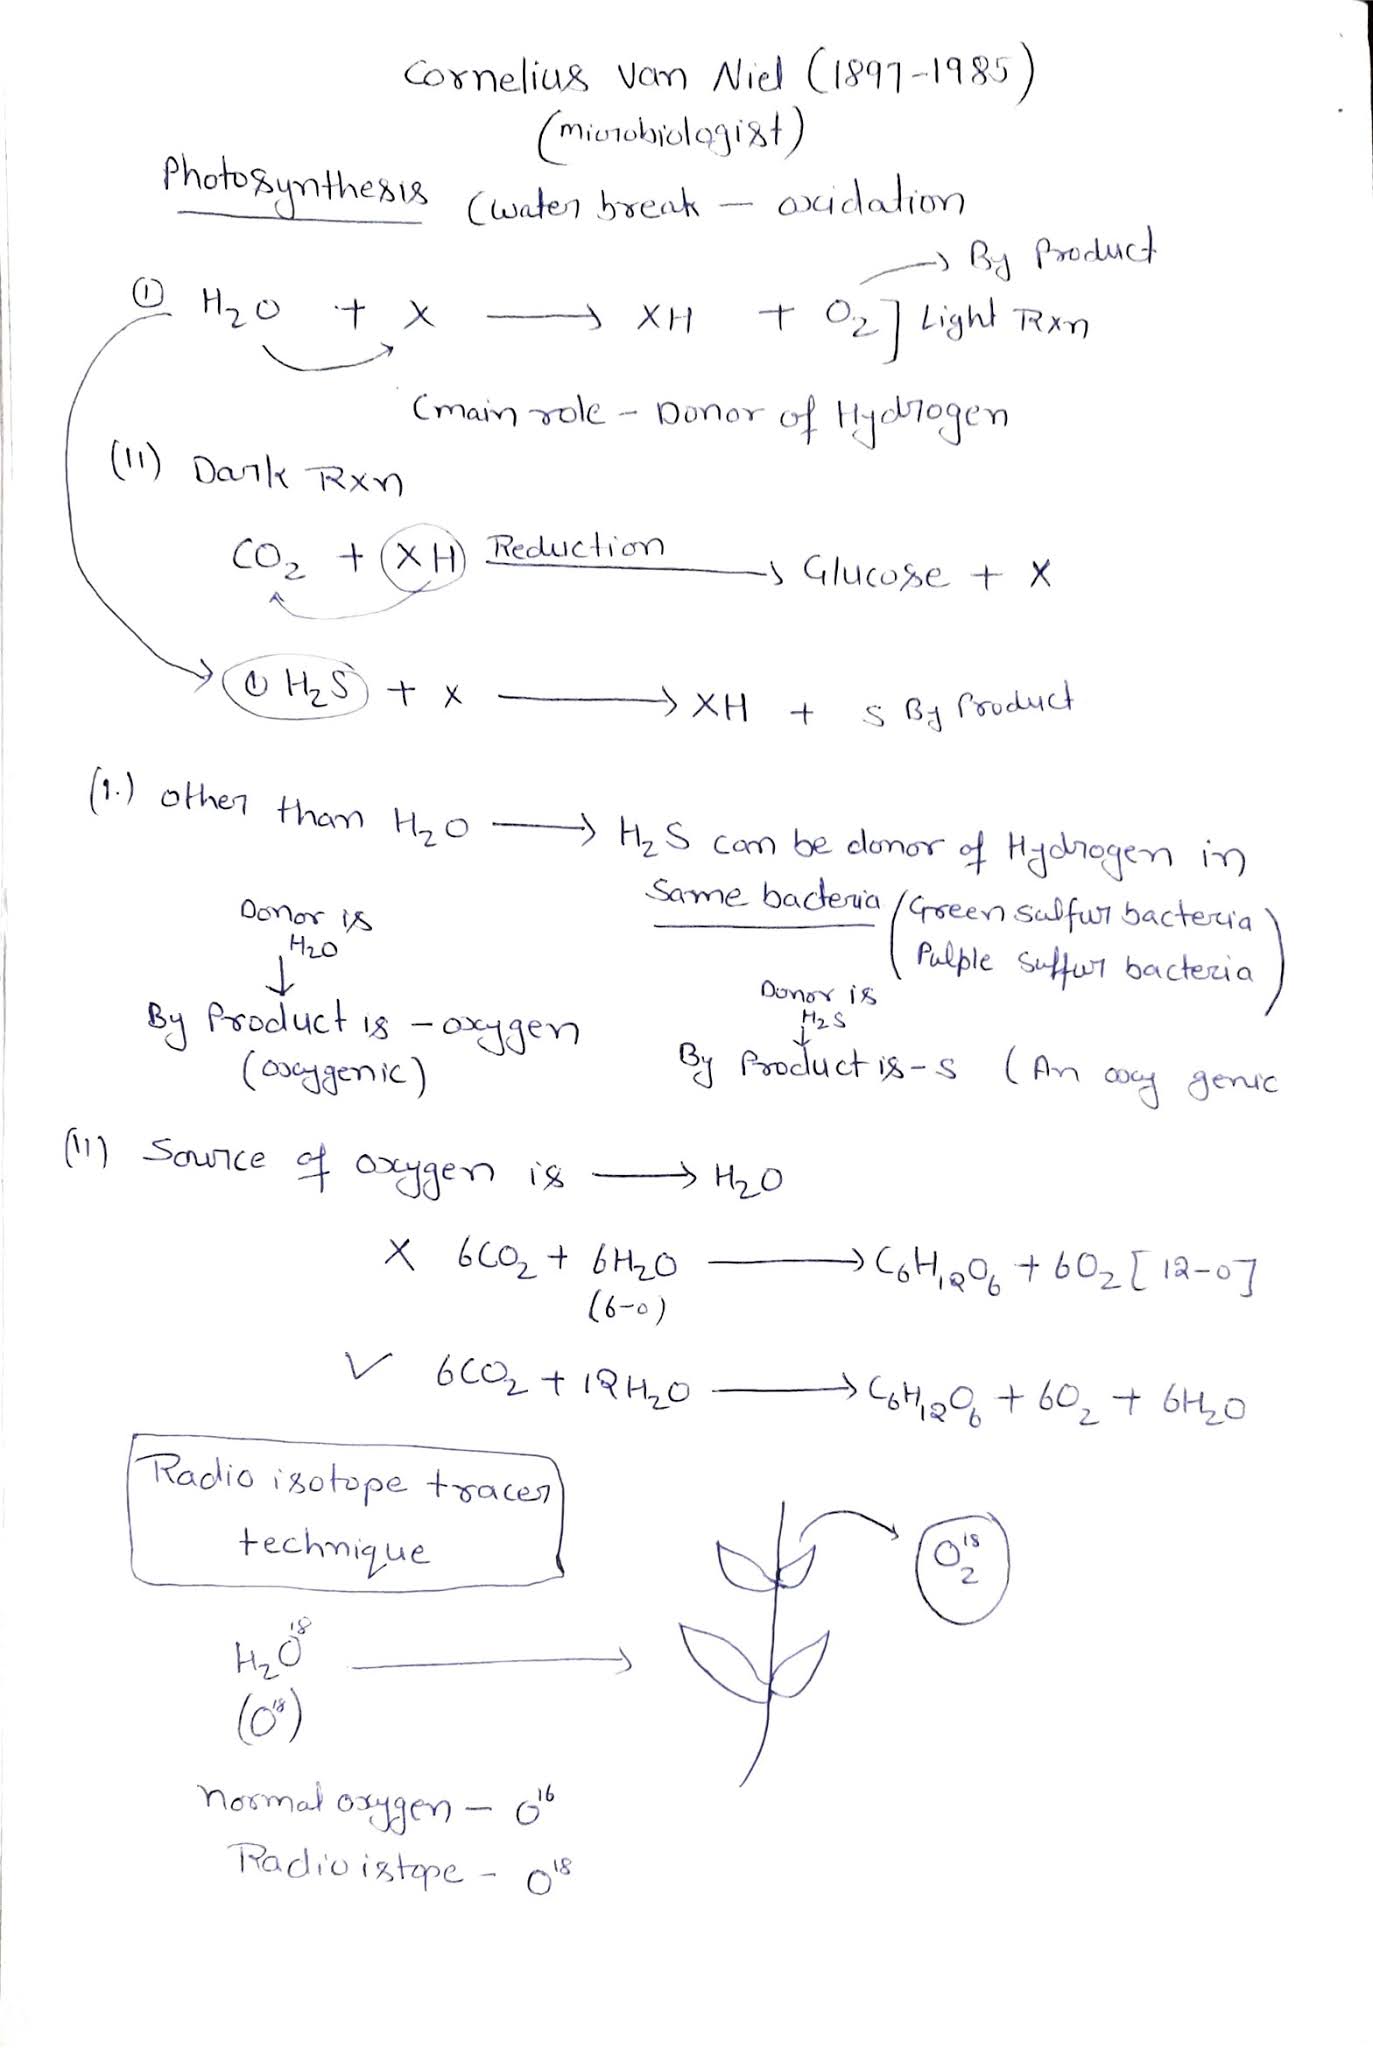 Cornelius Van Niel (1897-1985)
(microbiologist)
Photosynthesis (water break – oxidation
→ By Product
① H₂O + X ⟶ XH + O₂] Light Rxn
(main role - Donor of Hydrogen
(11) Dark Rxn
CO₂ + XH Reduction → Glucose + X
① H₂S + X ⟶ XH + S By Product
(1.) other than H₂O ⟶ H₂S can be donor of Hydrogen in
Same bacteria (Green sulfur bacteria
Pulple suffur bacteria)
Donor is
H₂O
↓
By Product is - oxygen
(oxygenic)
Donor is
H₂S
↓
By Product is - S (An oxy genic
(11) Source of oxygen is ⟶ H₂O
X 6CO₂ + 6H₂O ⟶ C₆H₁₂O₆ + 6O₂ [12-0]
(6-0)
✓ 6CO₂ + 12H₂O ⟶ C₆H₁₂O₆ + 6O₂ + 6H₂O
Radio isotope tracer
technique
O₂¹⁸
H₂O¹⁸ ⟶
(O¹⁸)
normal oxygen – O¹⁶
Radio istope - O¹⁸